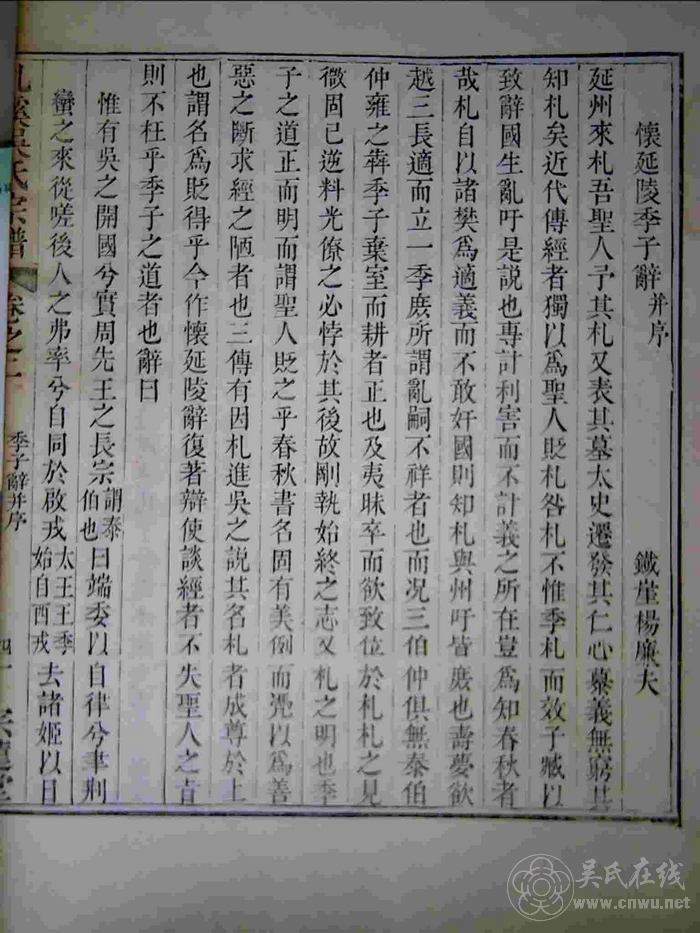 懷延陵季子辭并序
鐵崖楊廉夫
延州來札吾聖人予其札又表其墓太史遷發其仁心慕義無窮其
知札矣近代傳經者獨以為聖人貶札咎札不惟季札而效子臧以
致辭國生亂吁是說也專計利害而不計義之所在豈為知春秋者
哉札自以諸樊為適義而不敢奸國則知札與州吁皆庶也壽夢欲
越三長適而立一季庶所謂亂嗣不祥者也而況三伯仲俱無泰伯
仲雍之犇季子棄室而耕者正也及夷昧卒而欲致位於札札之見
微固已逆料光僚之必悖於其後故剛執始終之志又札之明也季
子之道正而明而謂聖人貶之乎春秋書名固有美例而凳以為善
惡之斷求經之陋者也三傳有因札進吳之說其名札者成尊於上
也謂名為貶得乎今作懷延陵辭復著辯使談經者不失聖人之旨
則不枉乎季子之道者也辭曰
惟有吳之開國兮實周先王之長宗謂泰伯也曰端委以自律兮聿荆
蠻之來從嗟後人之弗率兮自同於啟戎太王王季始自西戎去諸姬以日
吳氏宗譜
卷之二
季子辭并序
四一
吴氏在线
www.cnwu.net